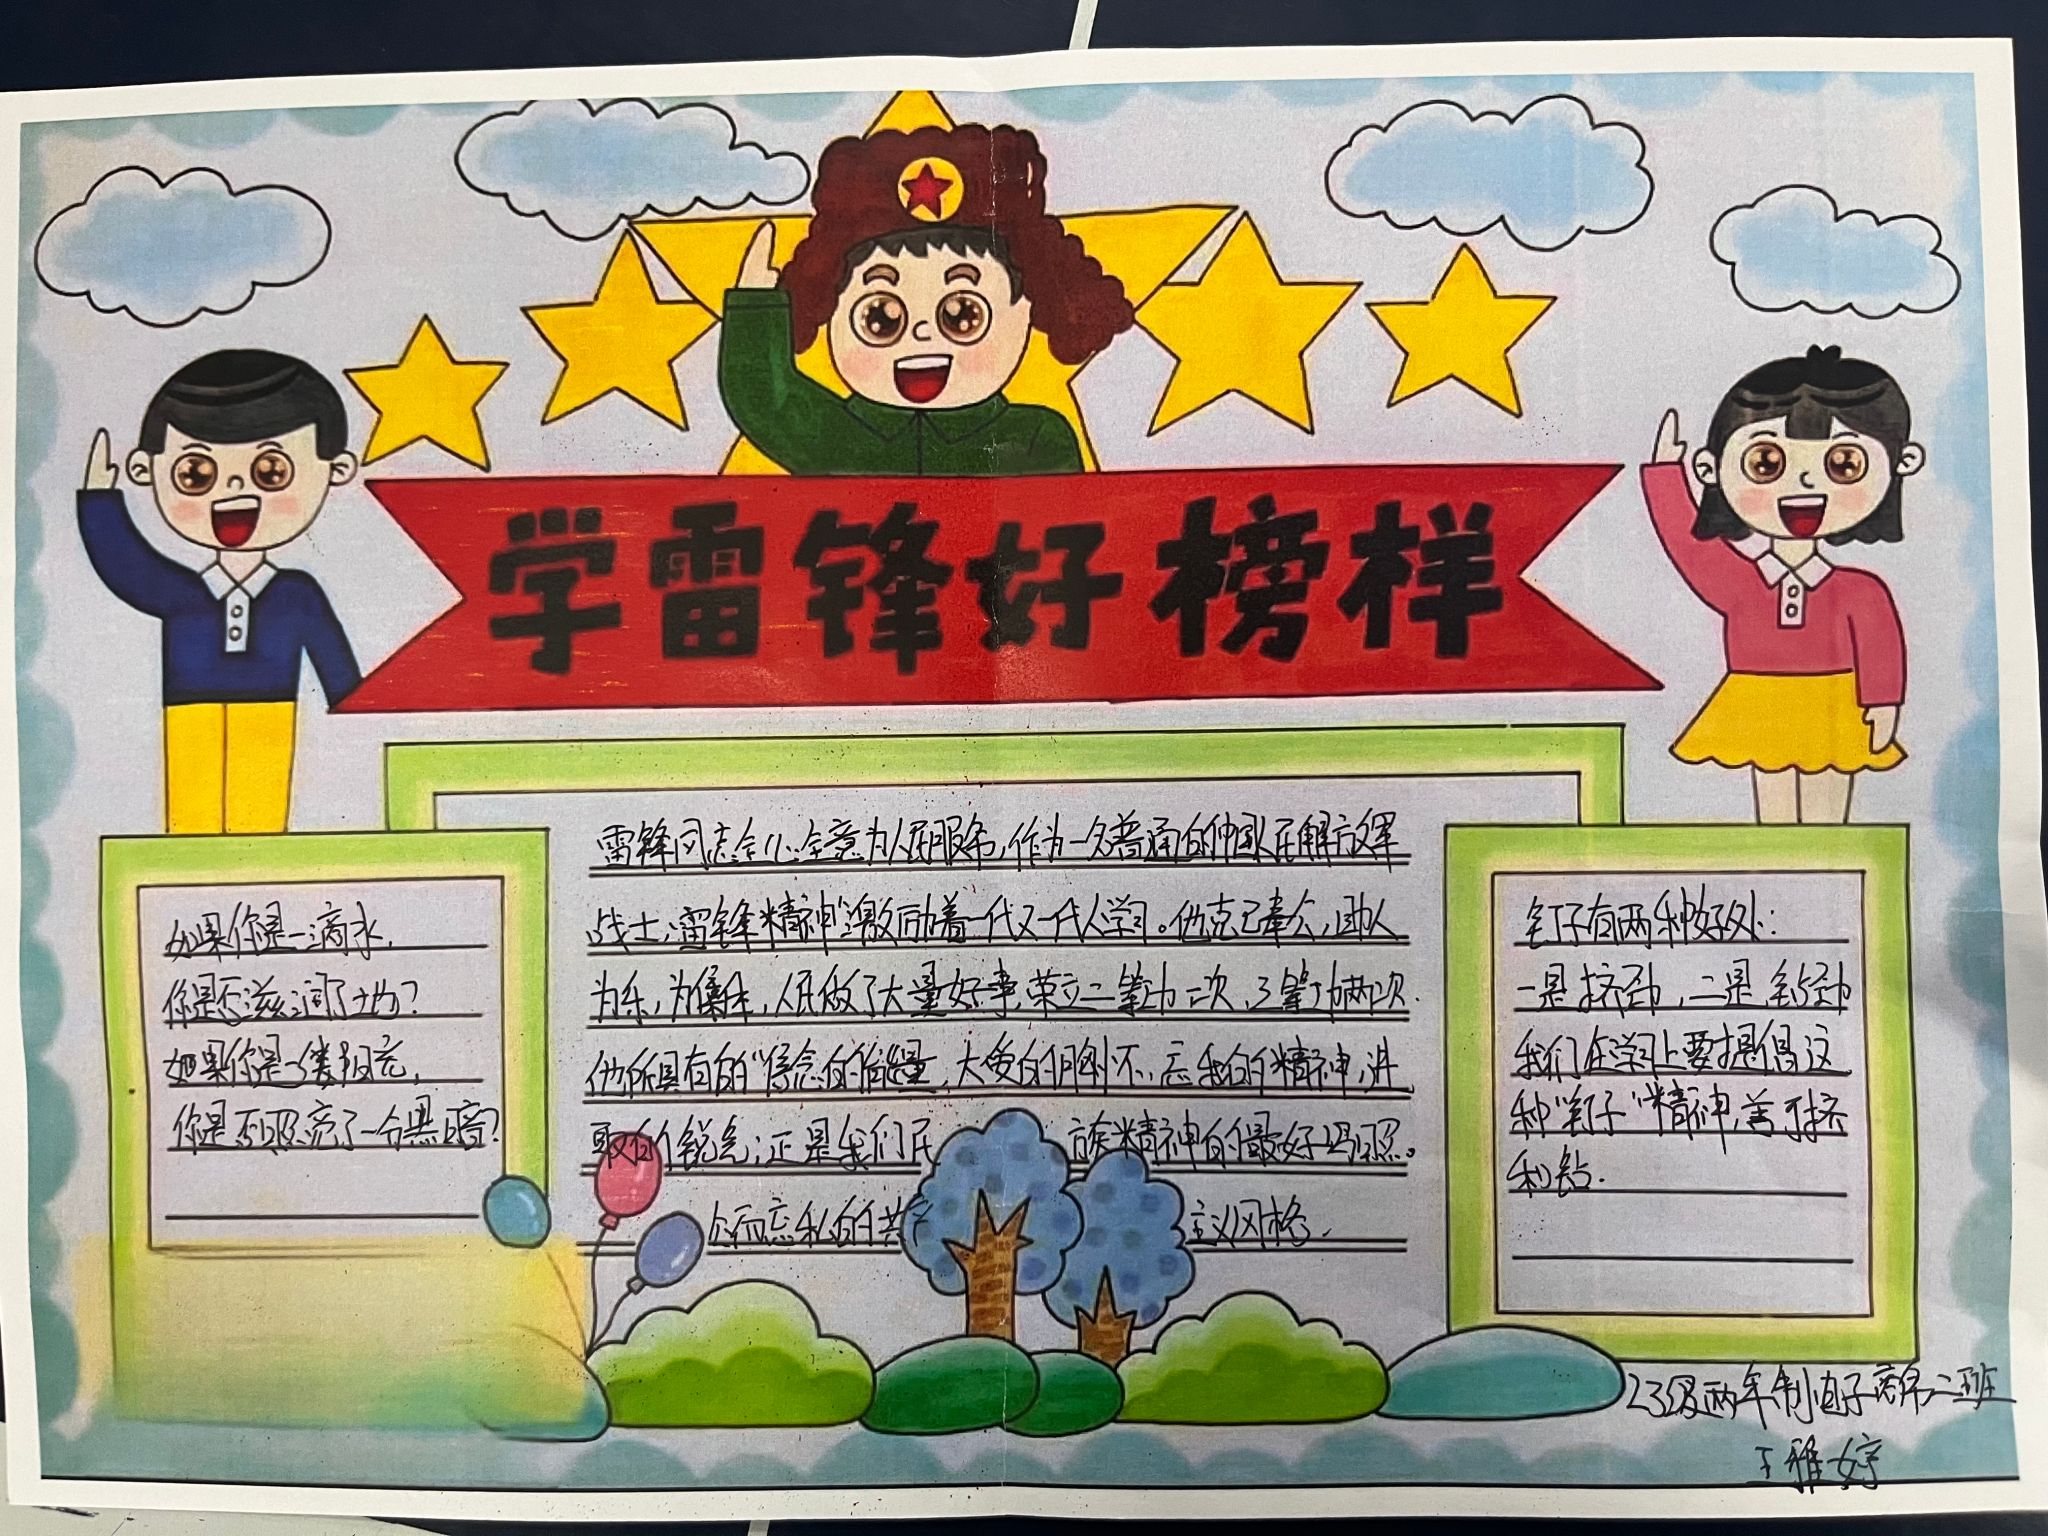 学雷锋好榜样
如果你是一滴水，
你是否滋润了土地？
如果你是一缕阳光，
你是否照亮了一分黑暗？
雷锋同志全心全意为人民服务，作为一名普通的中国人民解放军
战士，“雷锋精神”激励着一代又一代人学习。他克己奉公，助人
为乐，为集体，人民做了大量好事，荣立二等功一次，三等功两次.
他所具有的“信念的能量，大爱的胸怀，忘我的精神，进
取的锐气，正是我们民族精神的最好写照。
公而忘私的共产主义风格.
钉子有两种好处：
一是挤劲，二是钻劲
我们在学习上要提倡这
种“钉子”精神，善于挤
和钻.
23级两年制电子商务二班
王雅婷